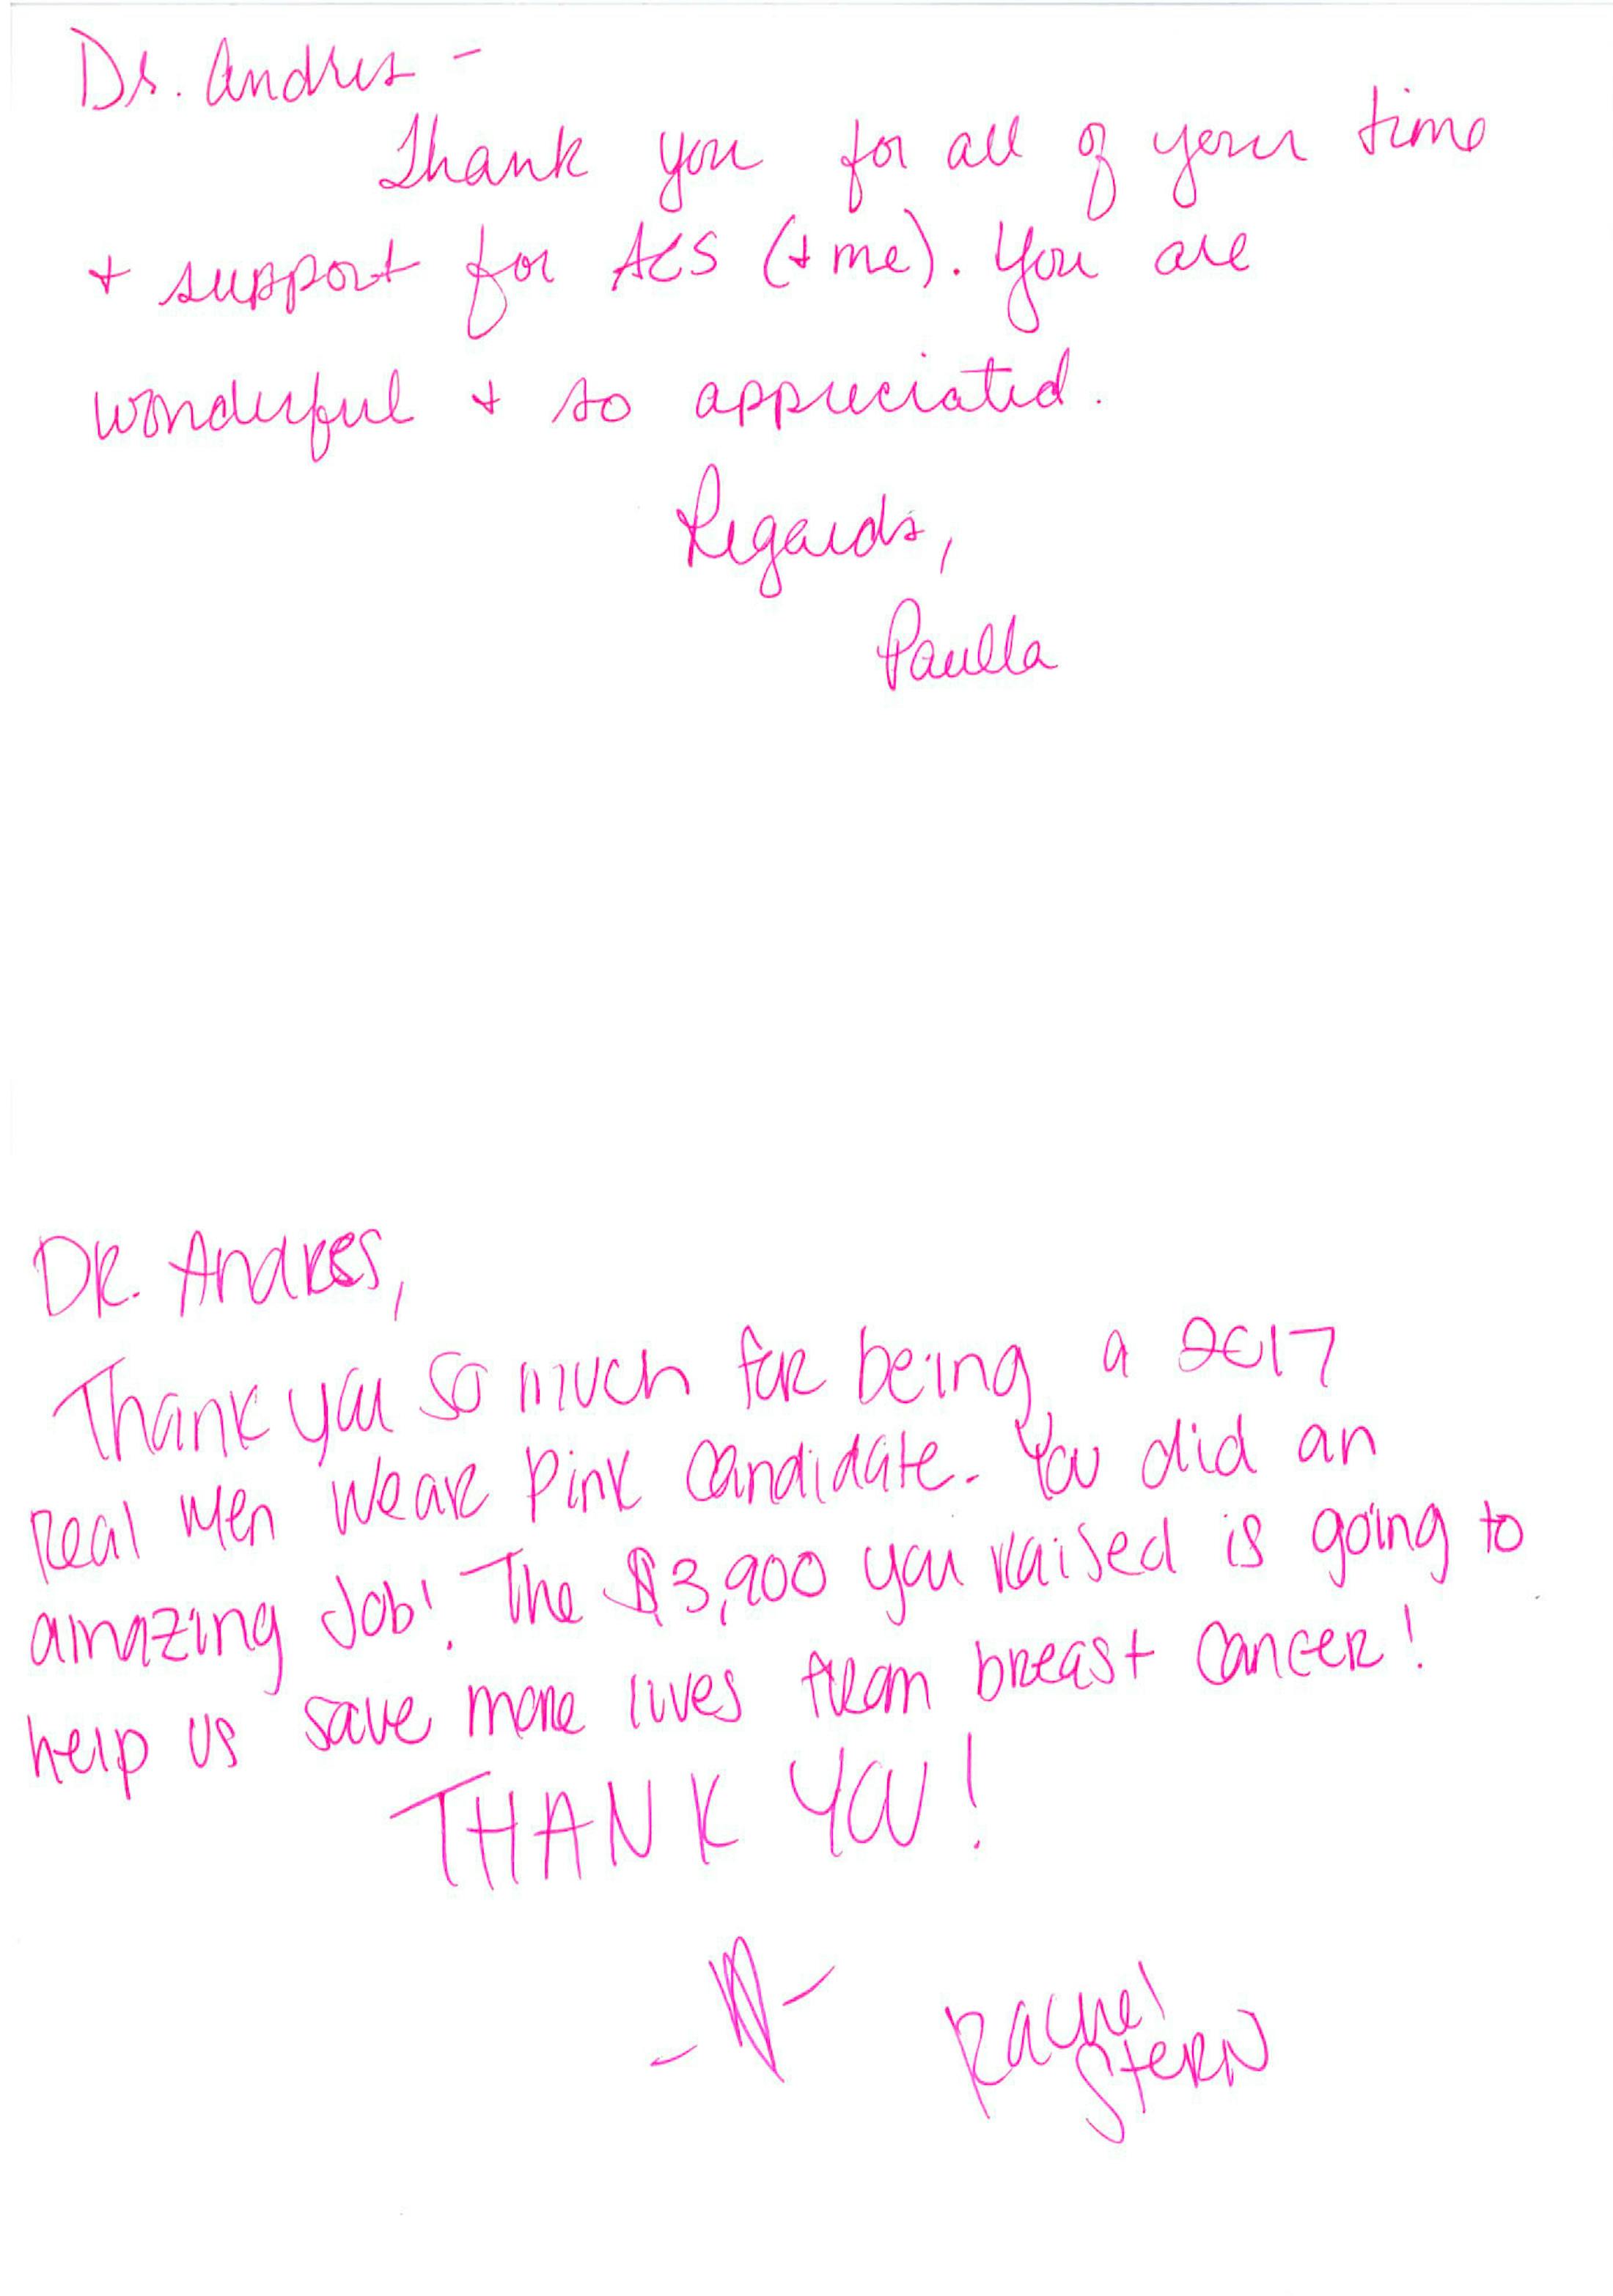 Dr. Andres -
Thank you for all of your time
+ support for ACS (+ me). You are
wonderful + so appreciated.
Regards,
Paulla
DR. Andres,
Thank you so much for being a 2017
Real Men Wear Pink Candidate. You did an
amazing Job! The $3,900 you raised is going to
help us save more lives from breast cancer!
THANK YOU!
Rachel
Stern